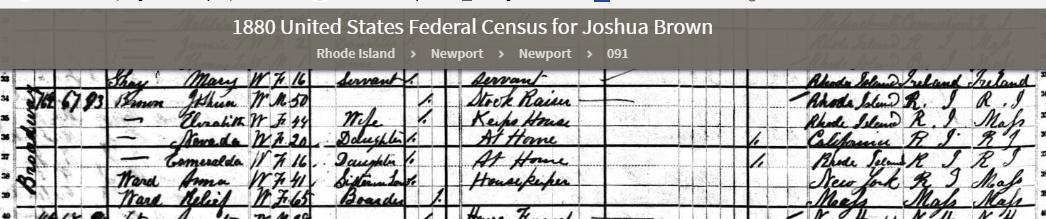 1880 United States Federal Census for Joshua Brown
Rhode Island > Newport > Newport > 091
Shay Mary W F 16 Servant Servant Rhode Island Ireland Ireland
34 162 67 93 Brown Joshua W M 50 Stock Raiser Rhode Island R. I R. I
— Elizabeth W F 44 Wife Keeps House Rhode Island R. I Mass
— Nevada W F 20 Daughter At Home California R I R I
— Esmeralda W F 16 Daughter At Home Rhode Island R. I Mass
Ward Anna W F 41 Sister in Law Housekeeper New York R. I Mass
Ward Relief W F 65 Boarder Mass Mass Mass
Broadway